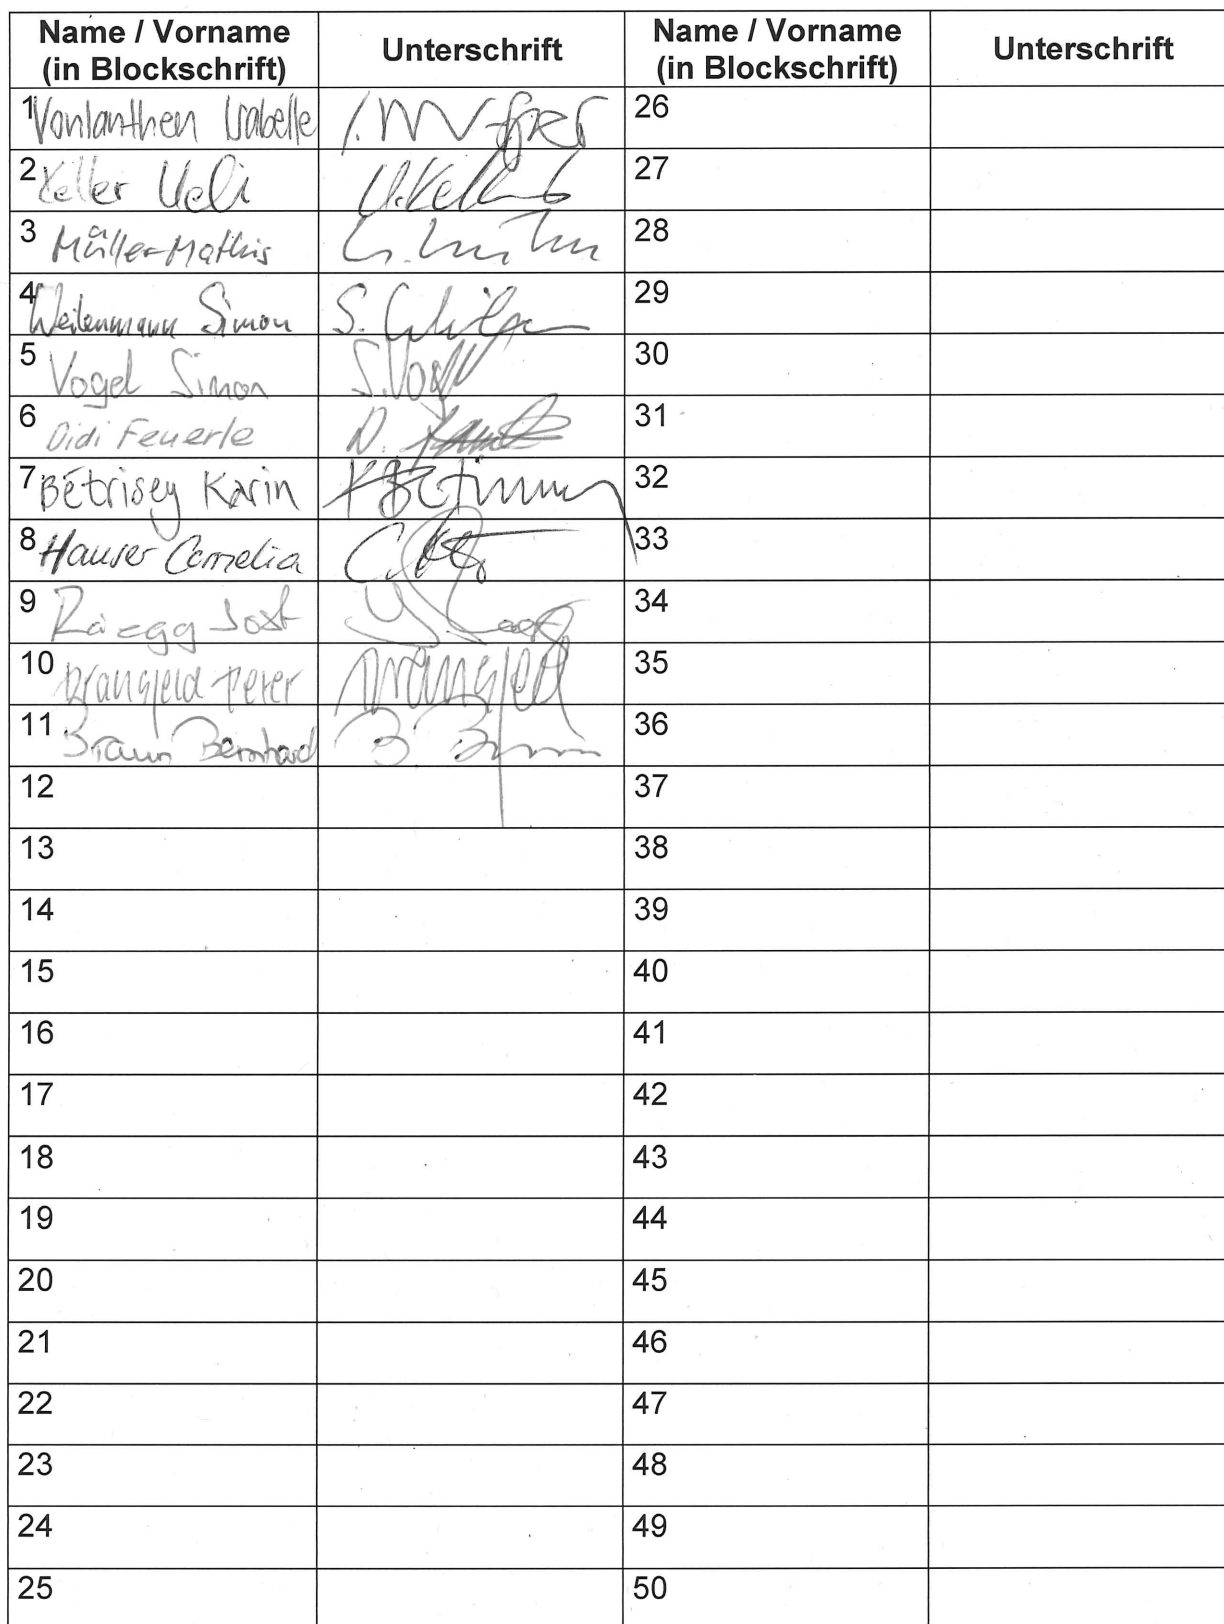 Name / Vorname (in Blockschrift) Unterschrift Name / Vorname (in Blockschrift) Unterschrift
1 Vonlanthen Isabelle 26
2 Keller Ueli U. Keller 27
3 Müller Mathis 28
4 Weilenmann Simon S. 29
5 Vogel Simon S. Vogel 30
6 Didi Feuerle D. 31
7 Bétrisey Karin 32
8 Hauser Cornelia C. 33
9 Rüegg Jost 34
10 Bransfeld Peter 35
11 Braun Bernhard B. Braun 36
12 37
13 38
14 39
15 40
16 41
17 42
18 43
19 44
20 45
21 46
22 47
23 48
24 49
25 50